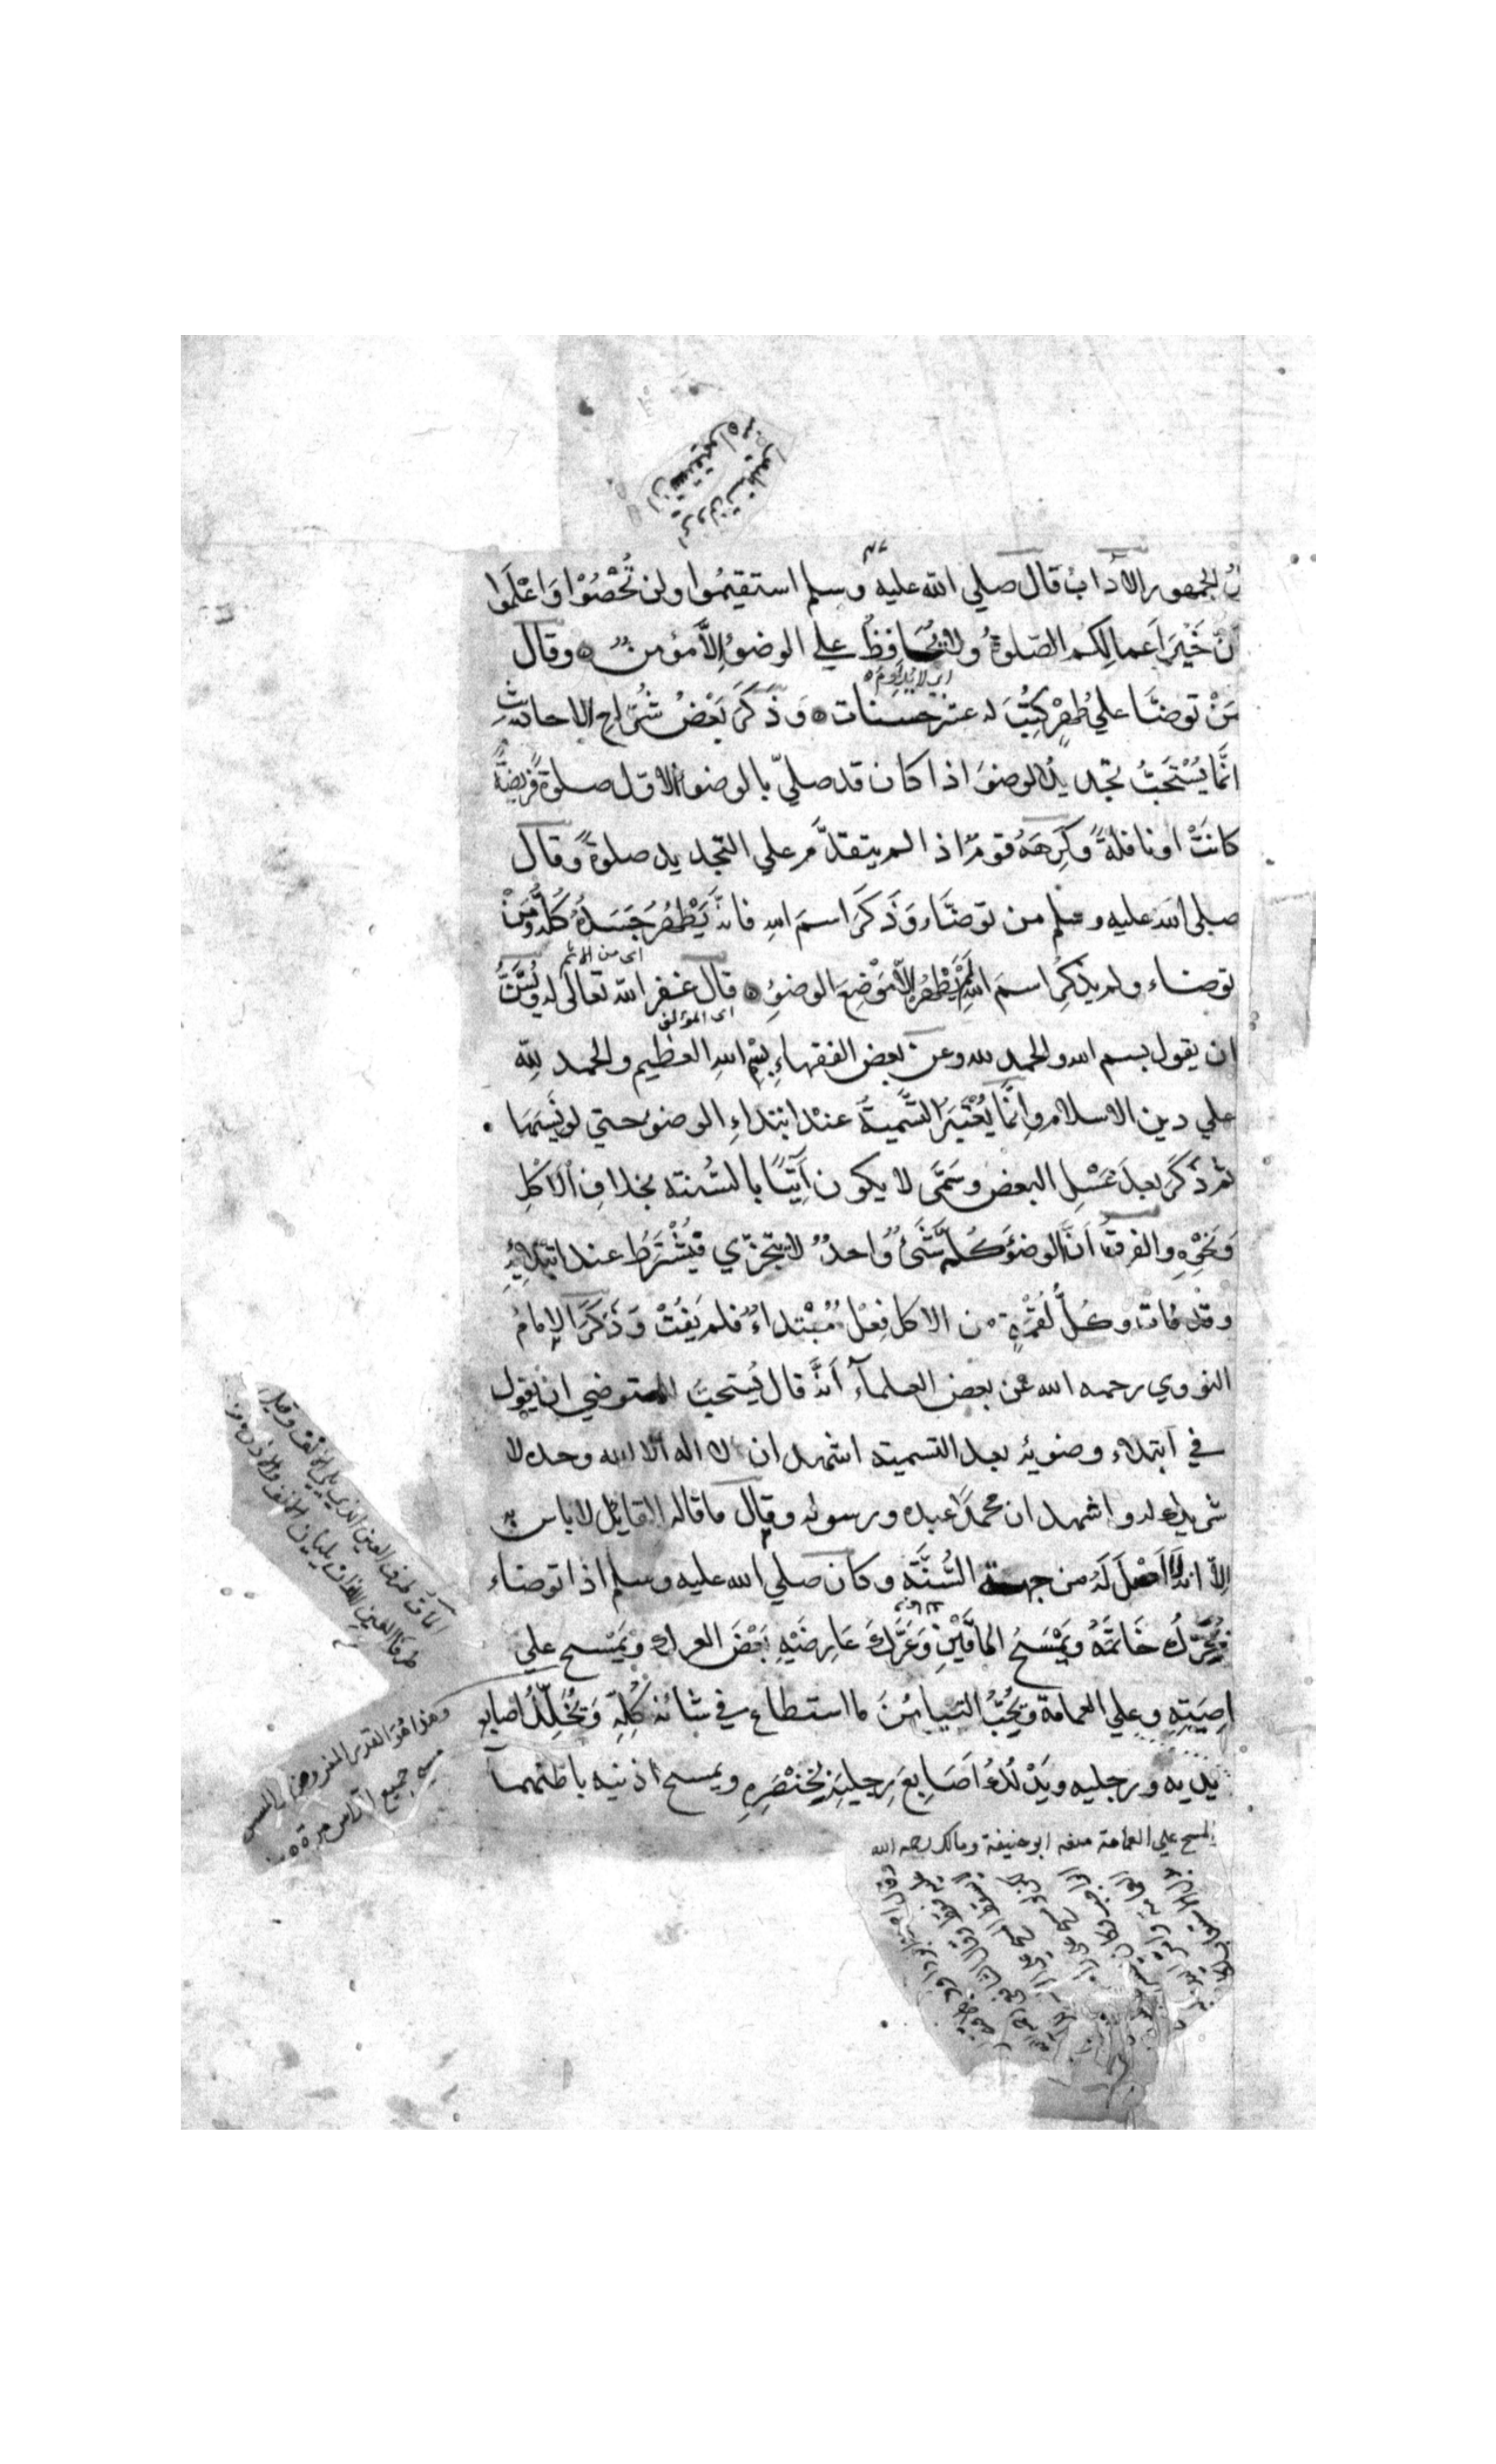 الجمهور الآدابُ قال صلي الله عليه وسلم استقيمُوا ولن تُحْصُوْا وَاعْلَموا
أنّ خَيْرَ اَعمالِكم الصّلوةُ ولا يُحَافِظُ علي الوضوُ إلاَّ مؤمنٌ وقال
اي لا يُدَاوِمُ
مَنْ توضَّا علي طُهرٍ كُتِبَ له عشر حسنات وَذَكَرَ بَعْضُ شُرّاحِ الاحاديثِ
انَّما يُسْتَحَبُّ تجديدُ الوضوَ اذا كان قد صليّ بالوضوءِ الاوّل صلوةً فريضةً
كانَتْ او نافلةً وكَرِهَهُ قومٌ اذا لم يتقدَّم علي التجديد صلوةً وقال
صلي الله عليه وسلم من توضَّاء وَذَكَرَ اسمَ اللهِ فانّه يَطْهُرُ جَسَدُهُ كُلُّه ومَنْ
اي من الاثم
توضاء ولم يذكرُ اسمَ اللهِ لَمْ يَطْهُرْ الاّ مَوْضِعَ الوضوُءِ قال غفر الله تعالي له ويُسَنُّ
اي المؤلف
ان يقول بسم الله والحمد لله وعن بعض الفقهاءِ بِسْمِ اللهِ العظيم والحمد لله
علي دين الاسلام وانَّما يُعْتَبَرُ التَّسْميةُ عندَ ابتداءِ الوضوء حتي لو نَسِيَهَا
ثم ذَكَرَ بعدَ غَسْلِ البعضِ وسَمَّى لا يكون آتيًا بالسُّنته بخلافِ الاكْلِ
وَنَحْوِهِ والفرقُ اَنَّ الوضوَُ كُلَّه شَئٌ واحدٌ لا يتجزّي فيُشْتَرطُ عند ابتدائِهِ
وقد فات وكُلُّ لُقْمَةٍ من الاكل فِعْلٌ مُبْتداءٌ فلم يَفُتْ وَذَكَرَ الإمامُ
النووي رحمه الله عن بعض العلمآء اَنّه قال يُستحبّ للمتوضي ان يقول
في ابتداء وضوئه بعد التسمية اشهد ان لا اله الا الله وحده لا
شريك له واشهد ان محمدًا عبده ورسوله وقال ما قاله القائل لاباس به
الاّ انّه لا اَصْلَ لَهُ من جهة السُّنَّة وكان صلي الله عليه وسلم اذا توضاء
يُحَرّكُ خَاتمَهُ ويَمْسَحُ الماقَيْنِ وَعَرَكَ عَارِضَيْهِ بَعْضَ العرك ويَمْسح علي
ناصِيَتِهِ وعلي العمامة ويُحِبُّ التيامُنَ ما استطاع في شانه كُلِّه وَيُخَلّلُ اصابع
يديه ورجليه ويَدْلُكُ اَصَابِعَ رِجليه بخِنْصَرِهِ ويمسح اذنيه باطنهما
المسح علي العمامة منعه ابو حنيفة ومالك رحمه الله
الماق طرف العين الذي يلي الانف وقيل
طرفا العين اللذان يليان الانف والاذن
وهذا هُوَ القدر المفروض في المسح
مسح جميع الراس مرة